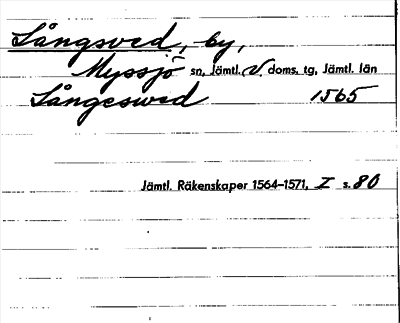 Långsved, by,
Myssjö sn, Jämtl. V. doms. tg, Jämtl. län
Långeswed 1565
Jämtl. Räkenskaper 1564–1571, I s. 80